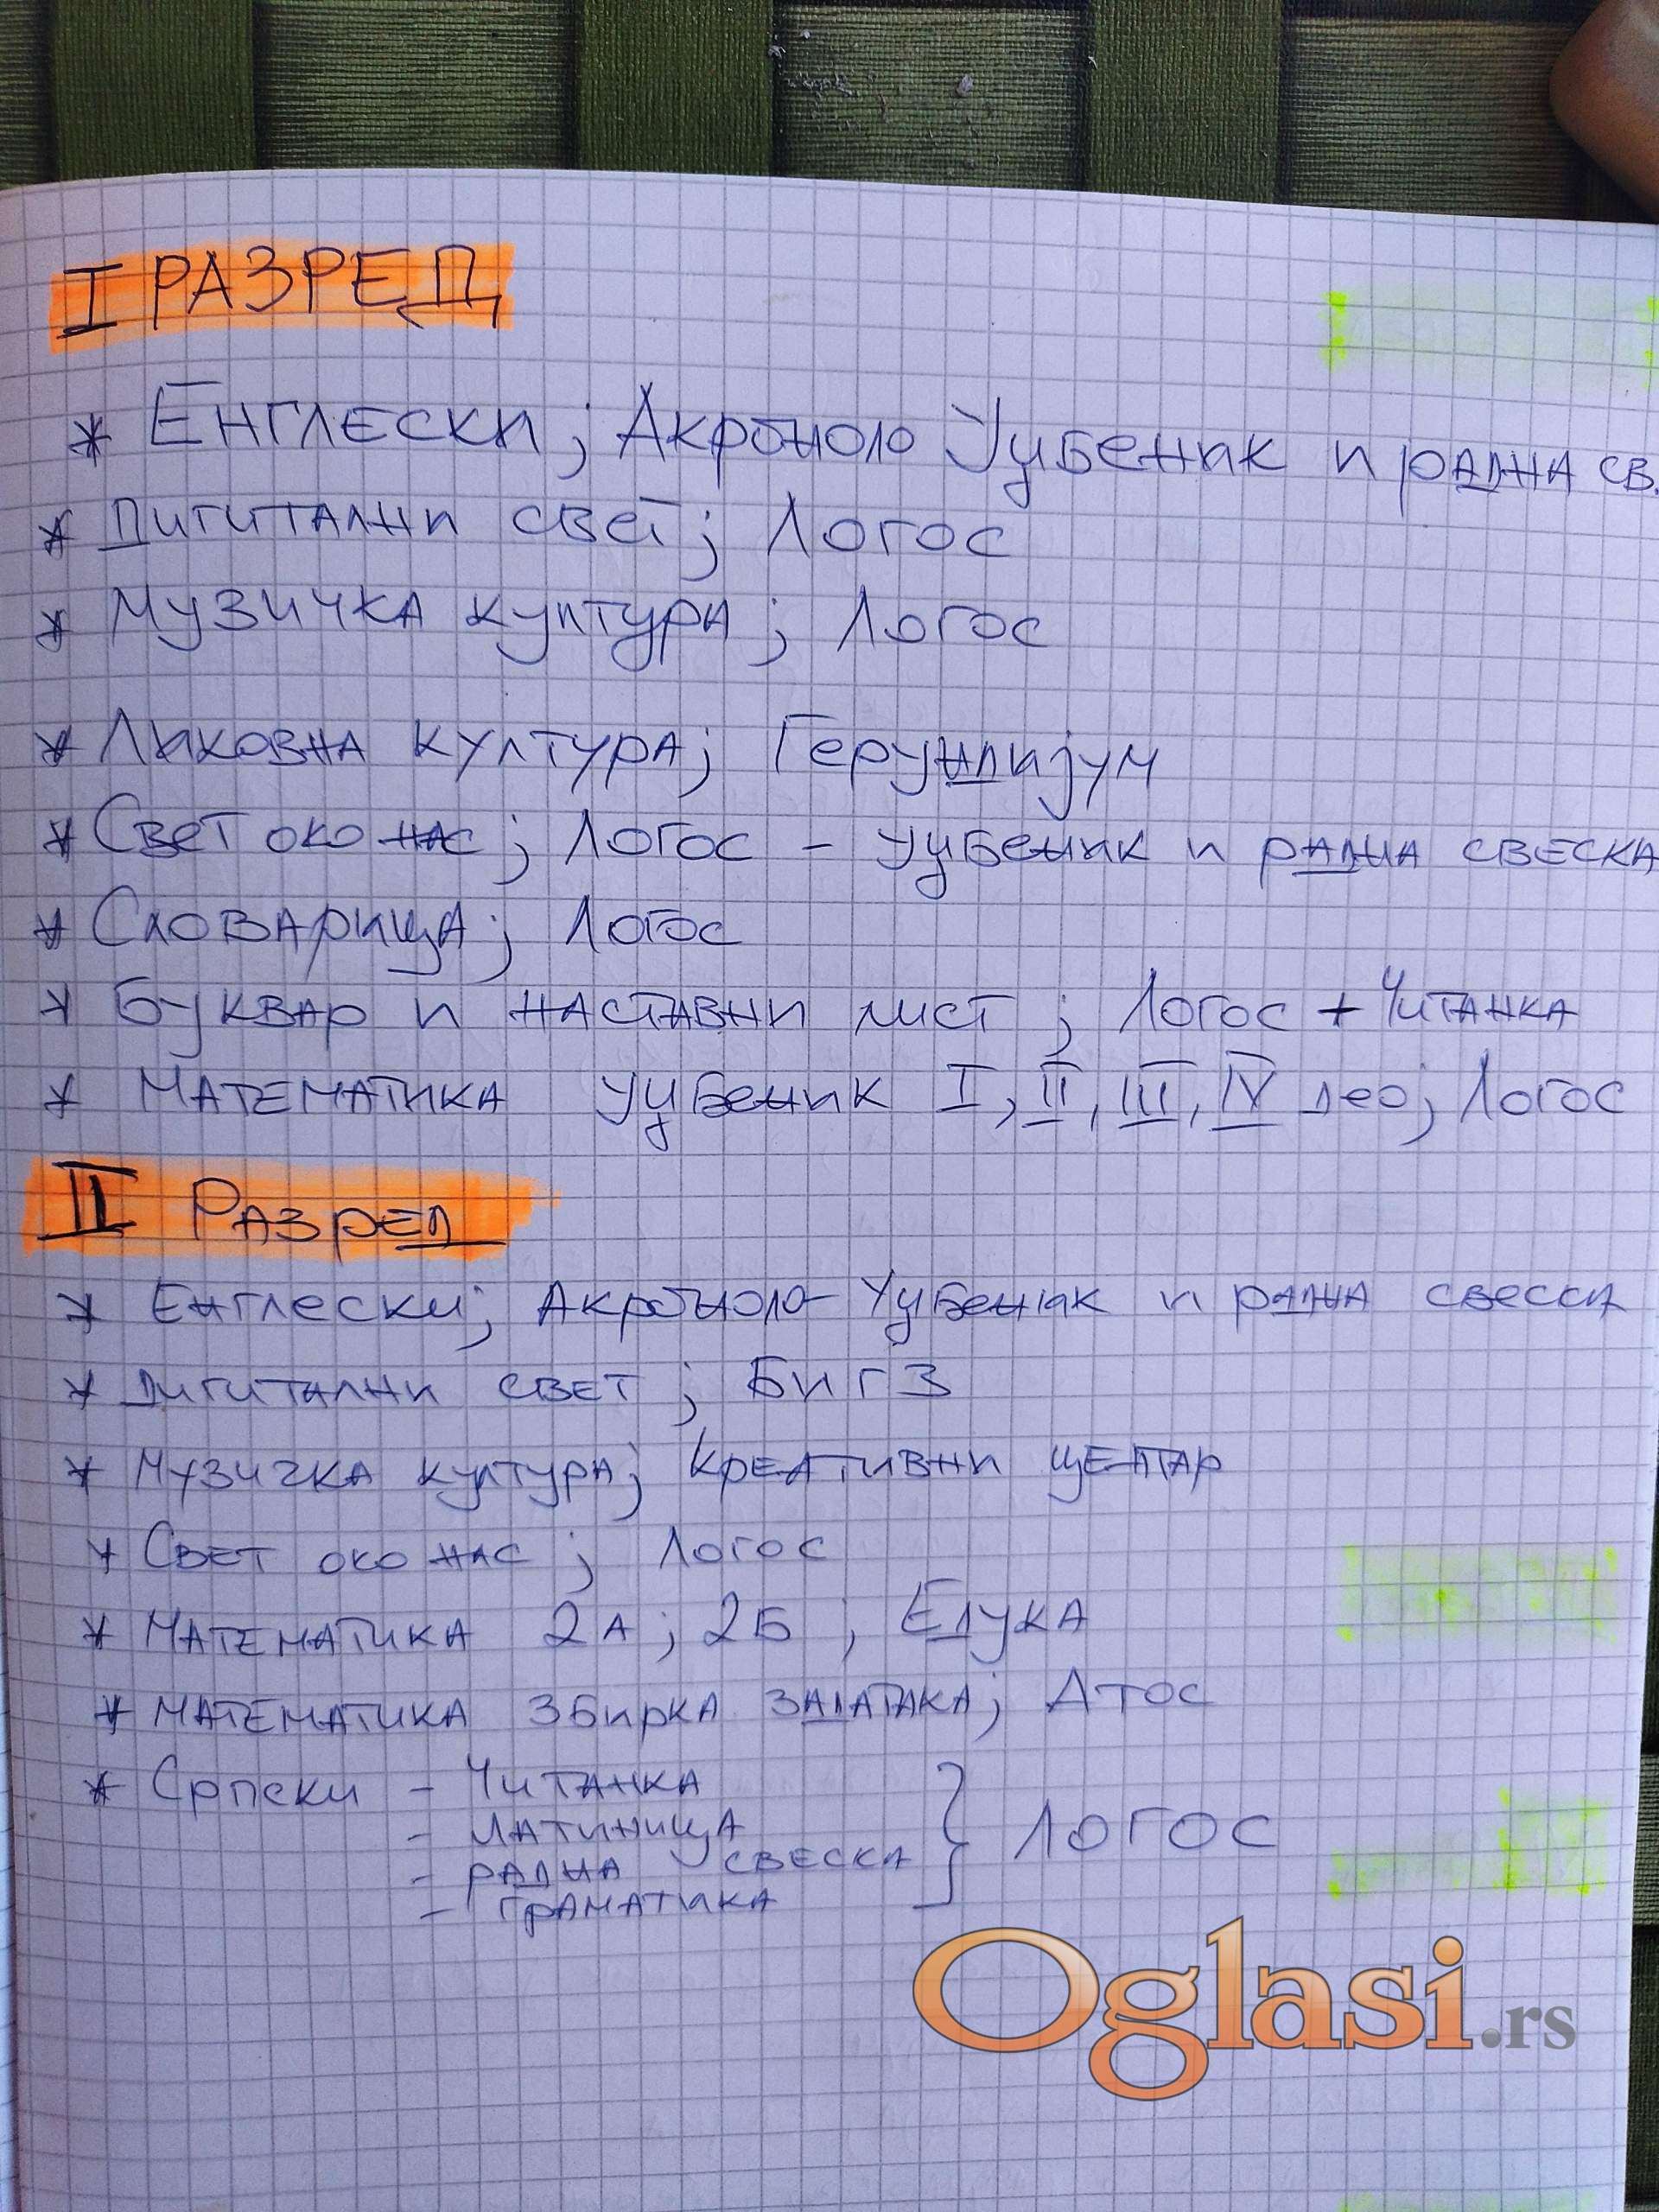 I РАЗРЕД
* ЕНГЛЕСКИ; АКРОНОЛО УЏБЕНИК И РАДНА СВ.
* ДИГИТАЛНИ СВЕТ; ЛОГОС
* МУЗИЧКА КУЛТУРА; ЛОГОС
* ЛИКОВНА КУЛТУРА; ГЕРУНДИЈУМ
* СВЕТ ОКО НАС; ЛОГОС - УЏБЕНИК И РАДНА СВЕСКА
* СЛОВАРИЦА; ЛОГОС
* БУКВАР И НАСТАВНИ ЛИСТ; ЛОГОС + ЧИТАНКА
* МАТЕМАТИКА УЏБЕНИК I, II, III, IV ДЕО; ЛОГОС
II РАЗРЕД
* ЕНГЛЕСКИ; АКРОНОЛО- УЏБЕНИК И РАДНА СВЕСКА
* ДИГИТАЛНИ СВЕТ; БИГЗ
* МУЗИЧКА КУЛТУРА; КРЕАТИВНИ ЦЕНТАР
* СВЕТ ОКО НАС; ЛОГОС
* МАТЕМАТИКА 2А; 2Б; ЕДУКА
* МАТЕМАТИКА ЗБИРКА ЗАДАТАКА; АТОС
* СРПСКИ - ЧИТАНКА
- ЛАТИНИЦА
- РАДНА СВЕСКА
- ГРАМАТИКА
} ЛОГОС
Oglasi.rs